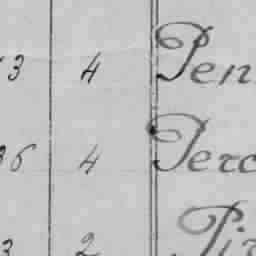 3 4 Pen
36 4 Perc
3 2 Pir